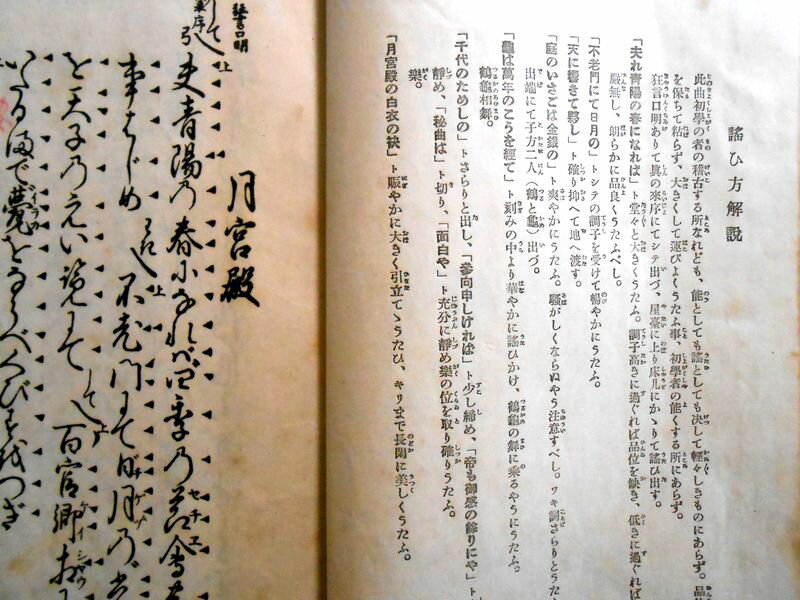 謠ひ方解說
此曲初學の者の稽古する所なれども、能としても謠としても決して輕々しきものにあらず。品位
を保ちて粘らず、大きくして運びよくうたふ事、初學者の能くする所にあらず。
狂言口明ありて眞の來序にてシテ出づ、屋臺に上り床几にかゝりて謠ひ出す。
「夫れ靑陽の春になれば」ト堂々と大きくうたふ。調子高きに過ぐれば品位を缺き、低きに過ぐれば
嚴無し、朗らかに品良くうたふべし。
「不老門にて日月の」トシテの調子を受けて暢やかにうたふ。
「天に響きて夥し」ト確り抑へて地へ渡す。
「庭のいさごは金銀の」ト爽やかにうたふ。騷がしくならぬやう注意すべし。ワキ詞さらりとうた
出端にて子方二人(鶴と龜)出づ。
「龜は萬年のこうを經て」ト刻みの中より華やかに謠ひかけ、鶴龜の舞に乘るやうにうたふ。
鶴龜相舞。
「千代のためしの」トさらりと出し、「參向申しければ」ト少し締め、「帝も御感の餘りにや」ト
靜め、「秘曲は」ト切り、「面白や」ト充分に靜め樂の位を取り確りうたふ。
樂。
「月宮殿の白衣の袂」ト賑やかに大きく引立てゝうたひ、キリまで長閑に美しくうたふ。
月宮殿
狂言口明
夫靑陽の春になれば四季の節會
事はじめ
不老門にて日月の
を天子のえい覽にて
百官卿相
いたるまで袖をつらねくびすをつぎ